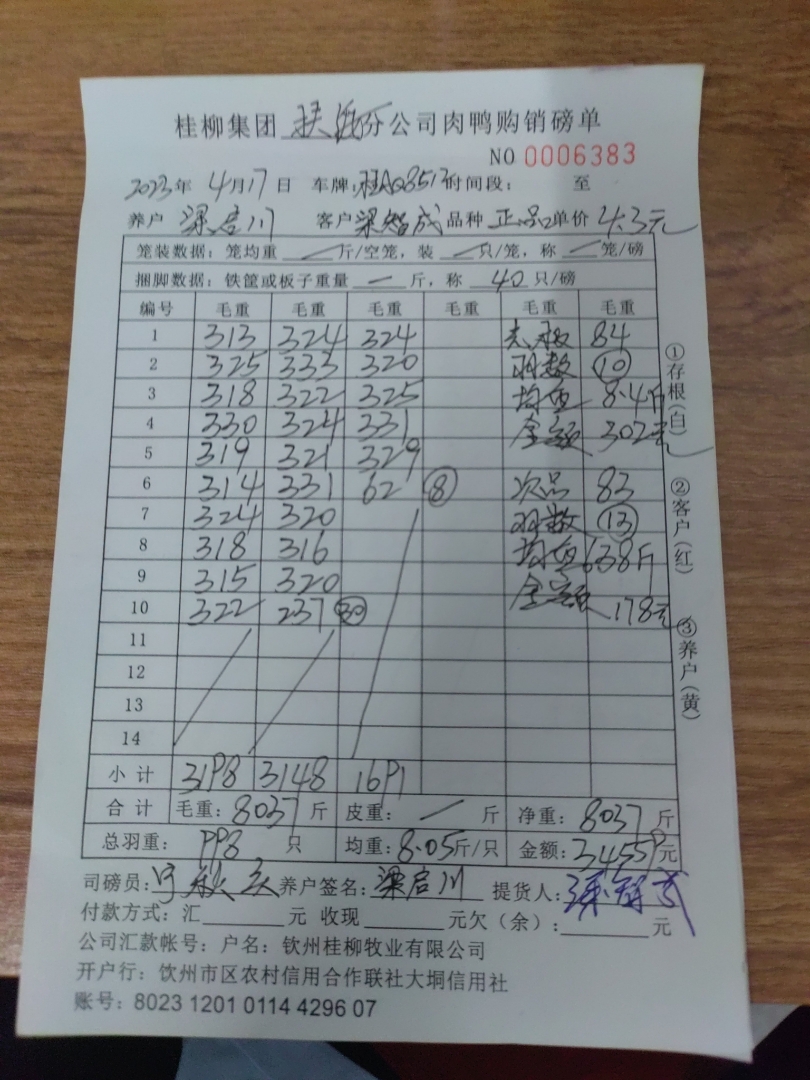 桂柳集团 扶绥分公司肉鸭购销磅单
NO 0006383
2023年 4月17日 车牌:桂AQ8512时间段: 至
养户 梁启川 客户梁智成 品种 正品 单价 4.3元
笼装数据: 笼均重 — 斤/空笼, 装 — 只/笼, 称 — 笼/磅
捆脚数据: 铁筐或板子重量 — 斤, 称 40 只/磅
编号 毛重 毛重 毛重 毛重 毛重 毛重
1 313 324 324 84
2 325 333 320 羽数 10
3 318 322 325 均重 8.4斤
4 330 324 331 金额 302元
5 319 321 329
6 314 331 62 8 次品 83
7 324 320 羽数 13
8 318 316 均重 6.38斤
9 315 320 金额
10 322 237 30 178元
11
12
13
14
小计 3198 3148 1691
合计 毛重: 8037 斤 皮重: — 斤 净重: 8037 斤
总羽重: 998 只 均重: 8.05斤/只 金额: 34559元
司磅员: 养户签名: 梁启川 提货人: 梁智成
付款方式: 汇 元 收现 元欠(余): 元
公司汇款帐号: 户名: 钦州桂柳牧业有限公司
开户行: 钦州市区农村信用合作联社大垌信用社
账号: 8023 1201 0114 4296 07
①存根(白)
②客户(红)
③养户(黄)